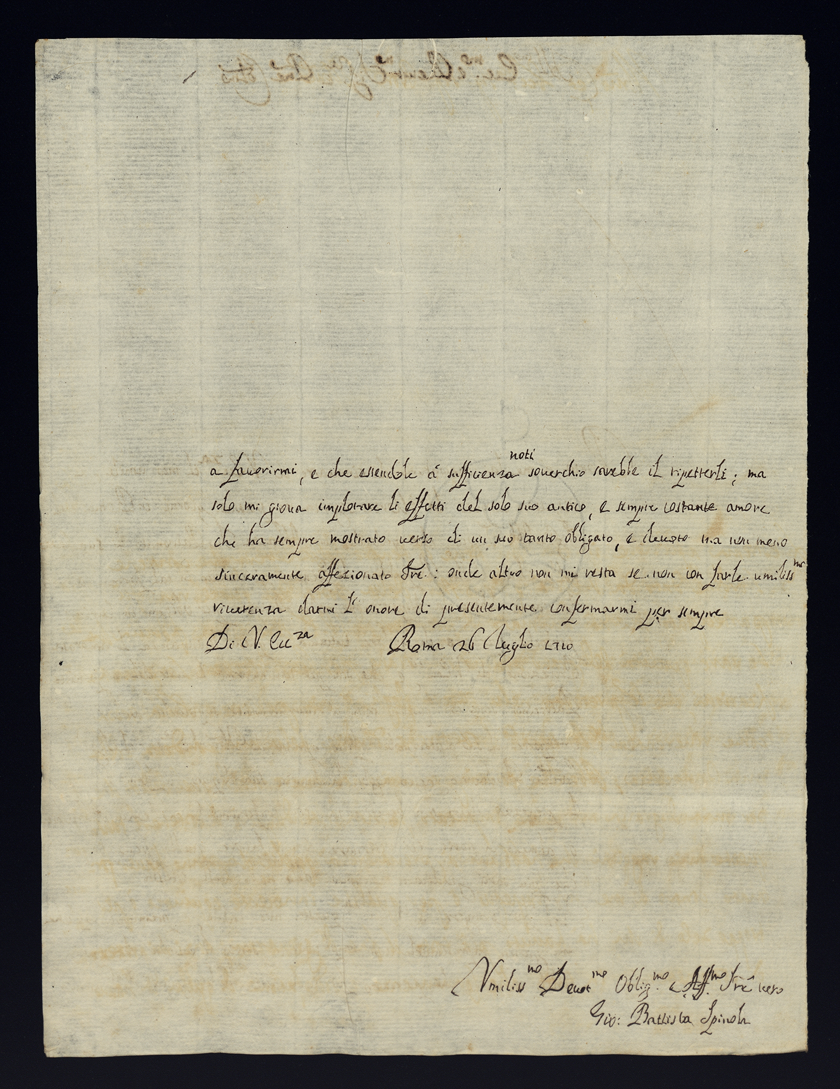 noti
a fauorirmi, e che essendole à sufficienza souerchio sarebbe il ripetterli; ma
solo mi gioua implorare li effetti del solo suo antico, e sempre costante amore
che ha sempre mostrato uerso di un suo tanto obligato, e deuoto ma non meno
sinceramente affezionato Sre: onde altro non mi resta se non con farle umiliss.ma
riuerenza darmi l'onore di presentemente confermarmi per sempre
Di V. Ecc.za Roma 26 Luglio 1710
Vmiliss.mo Deuot.mo Oblig.mo Aff.mo Sre uero
Gio: Battista Spinola